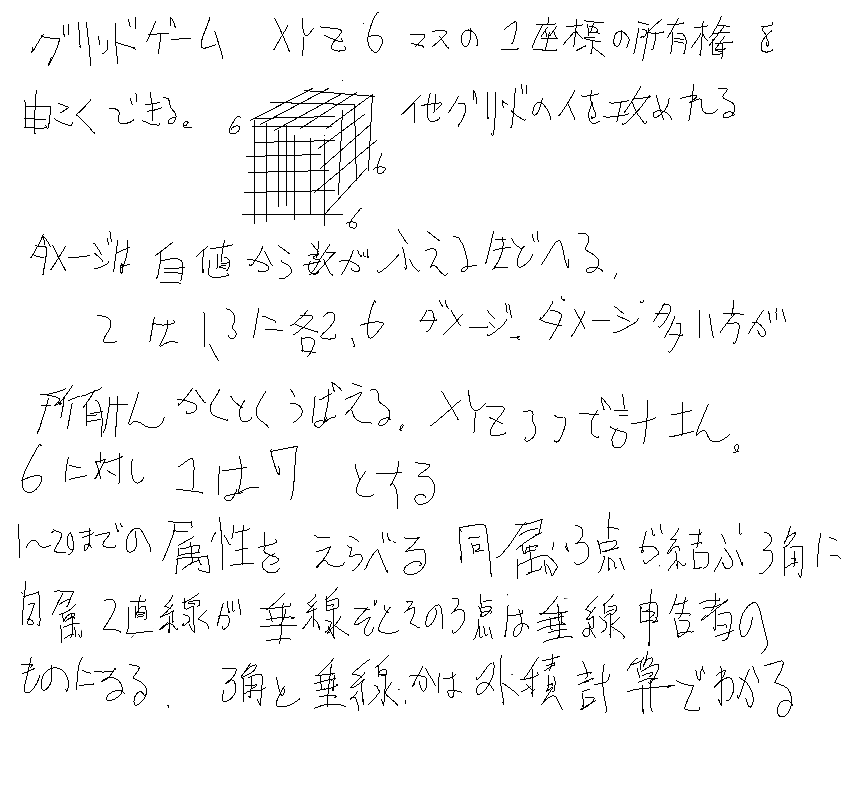 グリッドゲーム XYZ 6 マスの 1座標の所有権 を
申こくできる。 6 他グリッドの人を攻めれる
6
6
ダメージは 自値から数がふえるほどへる、
2 は 1、3に各2、6 ダメージ。ダメージ多い方が
所有けん かくとくうばえる。XYZ3つで計さん。
6に対し 1は7 とする
1〜20までの 属性を えらべる 同属が3点が結ぶ3角に
自属2直線が 垂線だとその3点は垂線申告者の
ものになる. 3角と垂線かは外積計算でわかる